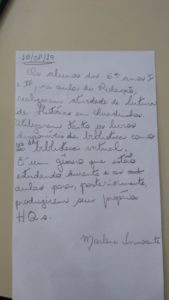 20/08/19
Os alunos dos 6os anos I
e II, na aula de Redação,
realizaram atividade de leitura
de Histórias em Quadrinhos.
Utilizaram tanto os livros
disponíveis da biblioteca como
da biblioteca virtual.
É um gênero que estão
estudando durante e as
aulas para, posteriormente,
produzirem suas próprias
HQs.
Marlene